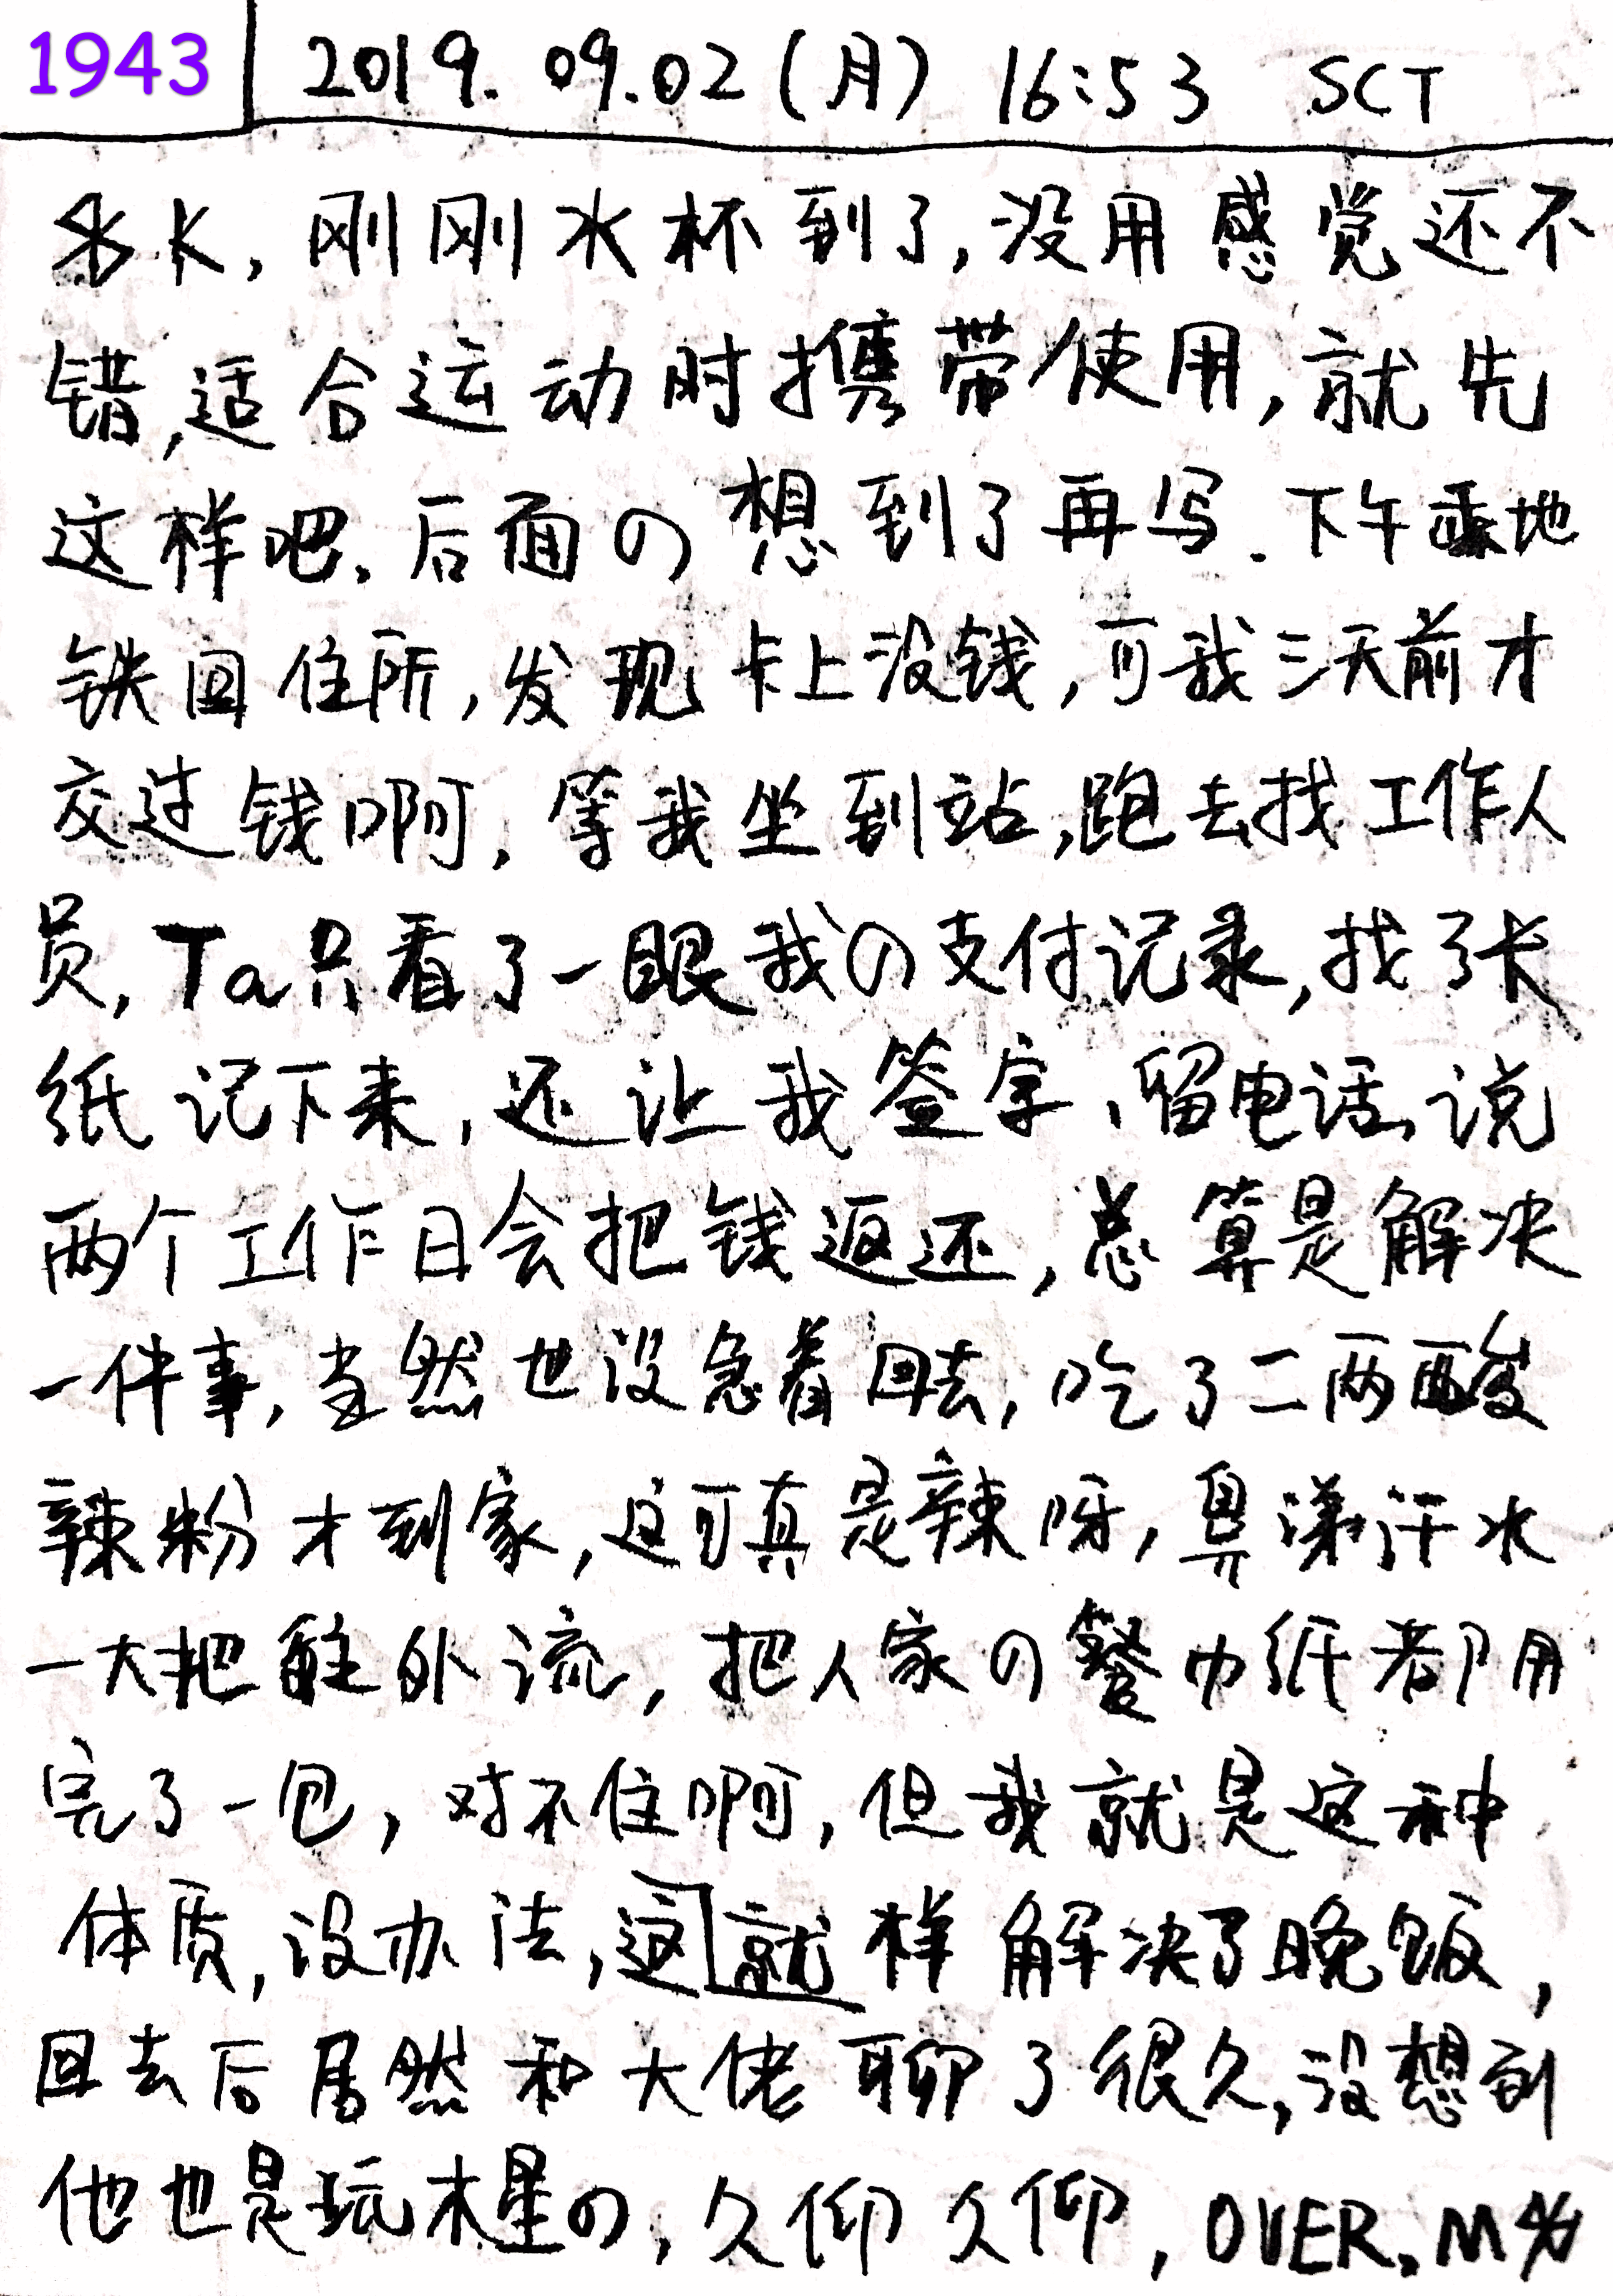 1943 2019.09.02(月) 16:53 SCT
K, 刚刚水杯到了,没用感觉还不
错,适合运动时携带使用,就先
这样吧.后面の想到了再写.下午乘地
铁回住所,发现卡上没钱,可我三天前才
交过钱啊,等我坐到站,跑去找工作人
员,Ta只看了一眼我の支付记录,找了张
纸记下来,还让我签字、留电话,说
两个工作日会把钱返还,总算是解决
一件事,当然也没急着回去,吃了二两酸
辣粉才到家,这可真是辣呀,鼻涕汗水
一大把往外流,把人家の餐巾纸都用
完了一包,对不住啊,但我就是这种
体质,没办法,这就样解决了晚饭,
回去后居然和大佬聊了很久,没想到
他也是玩木星の,久仰久仰,OVER.M